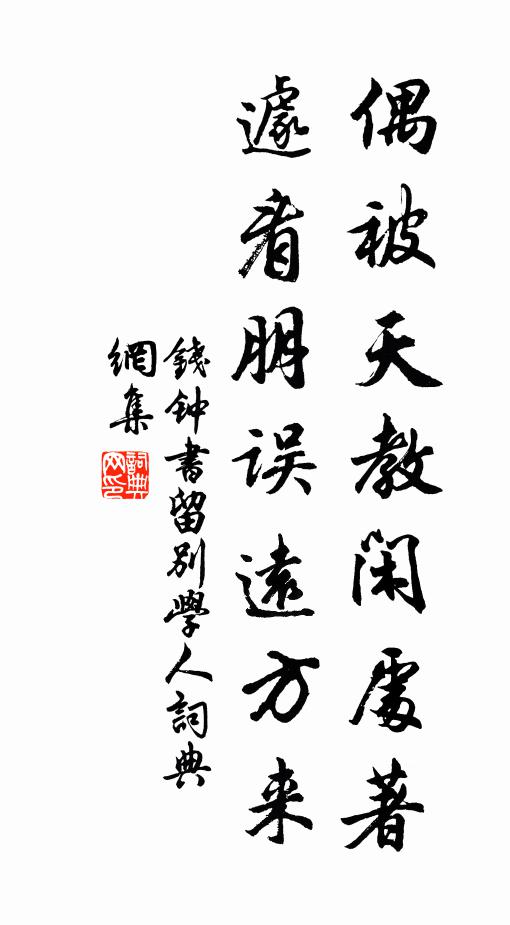 偶被天教閑處著
遽看朋误遠方来
錢钟書留别學人詞典
網集
詞典網印